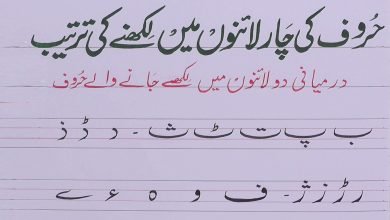 حُروف کی چار لائنوں میں لکھنے کی ترتیب
درمیانی دو لائنون میں لکھے جانے والے حُروف
ب پ ت ٹ ث - د ڈ ذ
ر ڑ ز ژ - ف و ہ ء ے